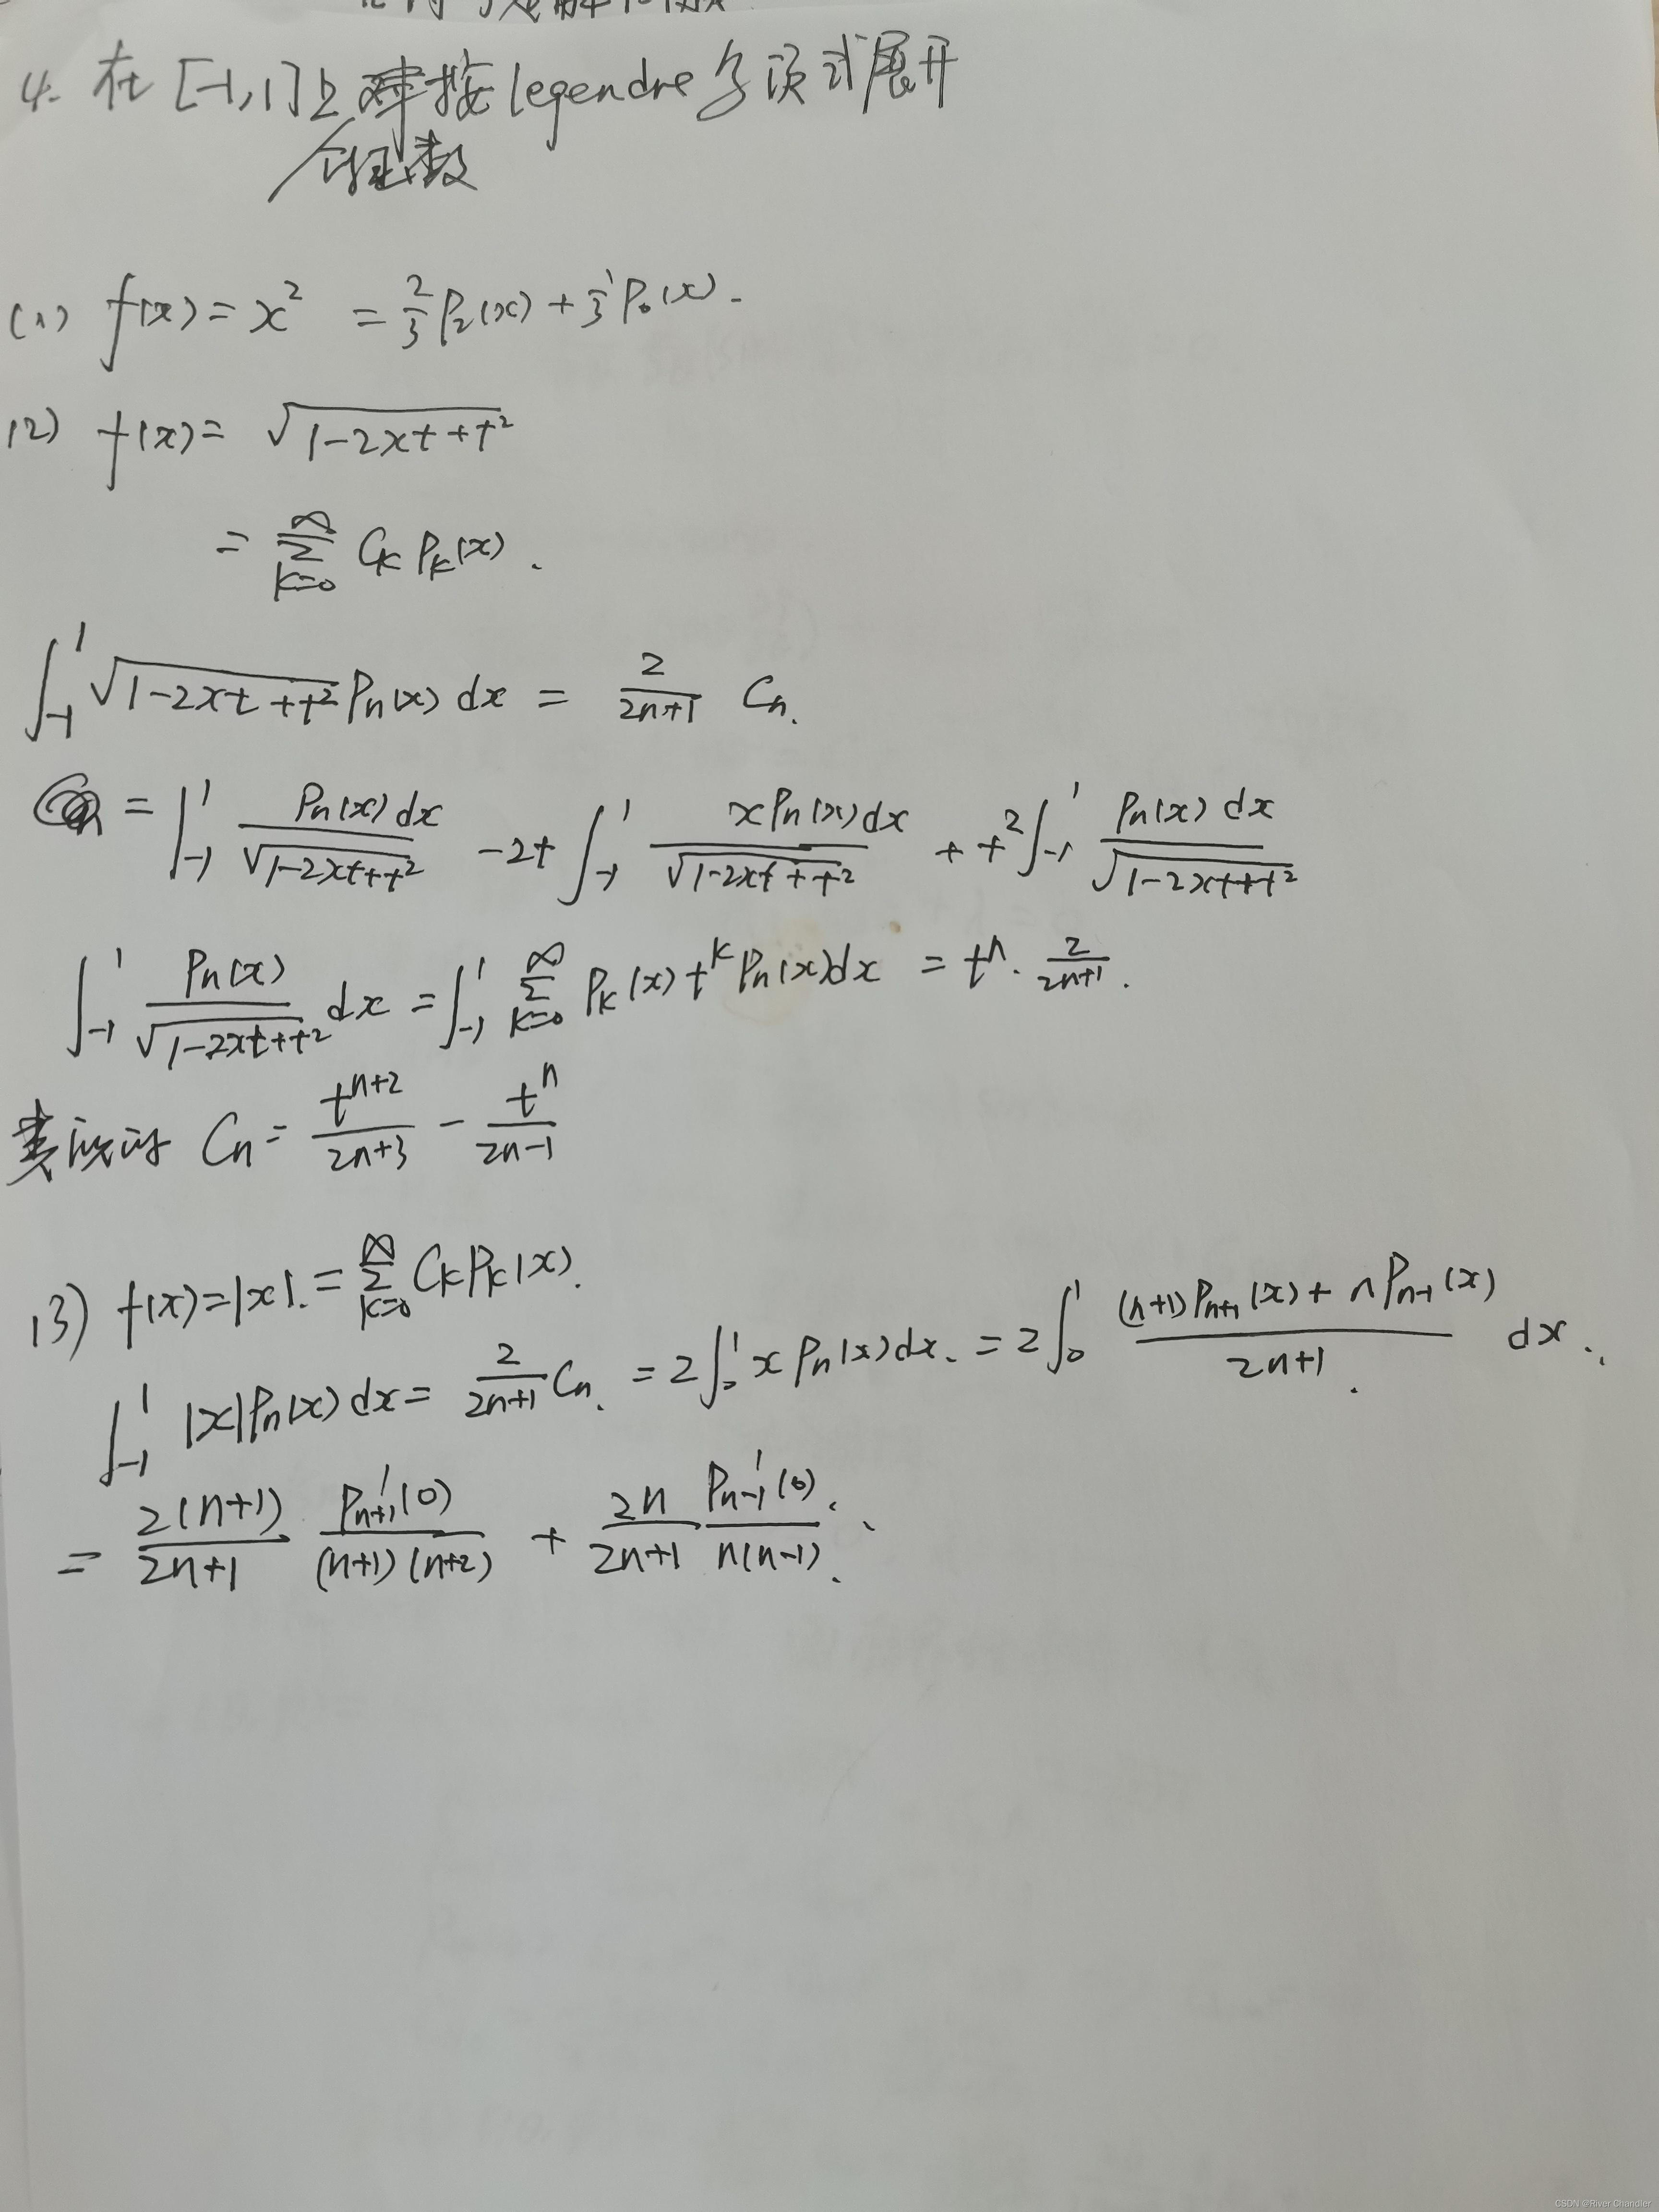 4. 在[-1,1]上 按legendre多项式展开
(1) f(x) = x² = 2/3 P₂(x) + 1/3 P₀(x).
(2) f(x) = √(1-2xt+t²)
= ∑_{k=0}^{∞} C_k P_k(x).
∫_{-1}^{1} √(1-2xt+t²) P_n(x) dx = 2/(2n+1) C_n.
= ∫_{-1}^{1} P_n(x)dx/√(1-2xt+t²) -2t ∫_{-1}^{1} xP_n(x)dx/√(1-2xt+t²) + t² ∫_{-1}^{1} P_n(x)dx/√(1-2xt+t²)
∫_{-1}^{1} P_n(x)/√(1-2xt+t²) dx = ∫_{-1}^{1} ∑_{k=0}^{∞} P_k(x) t^k P_n(x)dx = t^n · 2/(2n+1).
C_n = t^{n+2}/(2n+3) - t^n/(2n-1)
(3) f(x)=|x|. = ∑_{k=0}^{∞} C_k P_k(x).
∫_{-1}^{1} |x|P_n(x)dx = 2/(2n+1) C_n. = 2∫_0^1 xP_n(x)dx. = 2∫_0^1 ((n+1)P_{n+1}(x) + nP_{n-1}(x))/(2n+1) dx.
= 2(n+1)/(2n+1) P_{n+1}'(0)/((n+1)(n+2)) + 2n/(2n+1) P_{n-1}'(0)/(n(n-1)).
CSDN @River Chandler